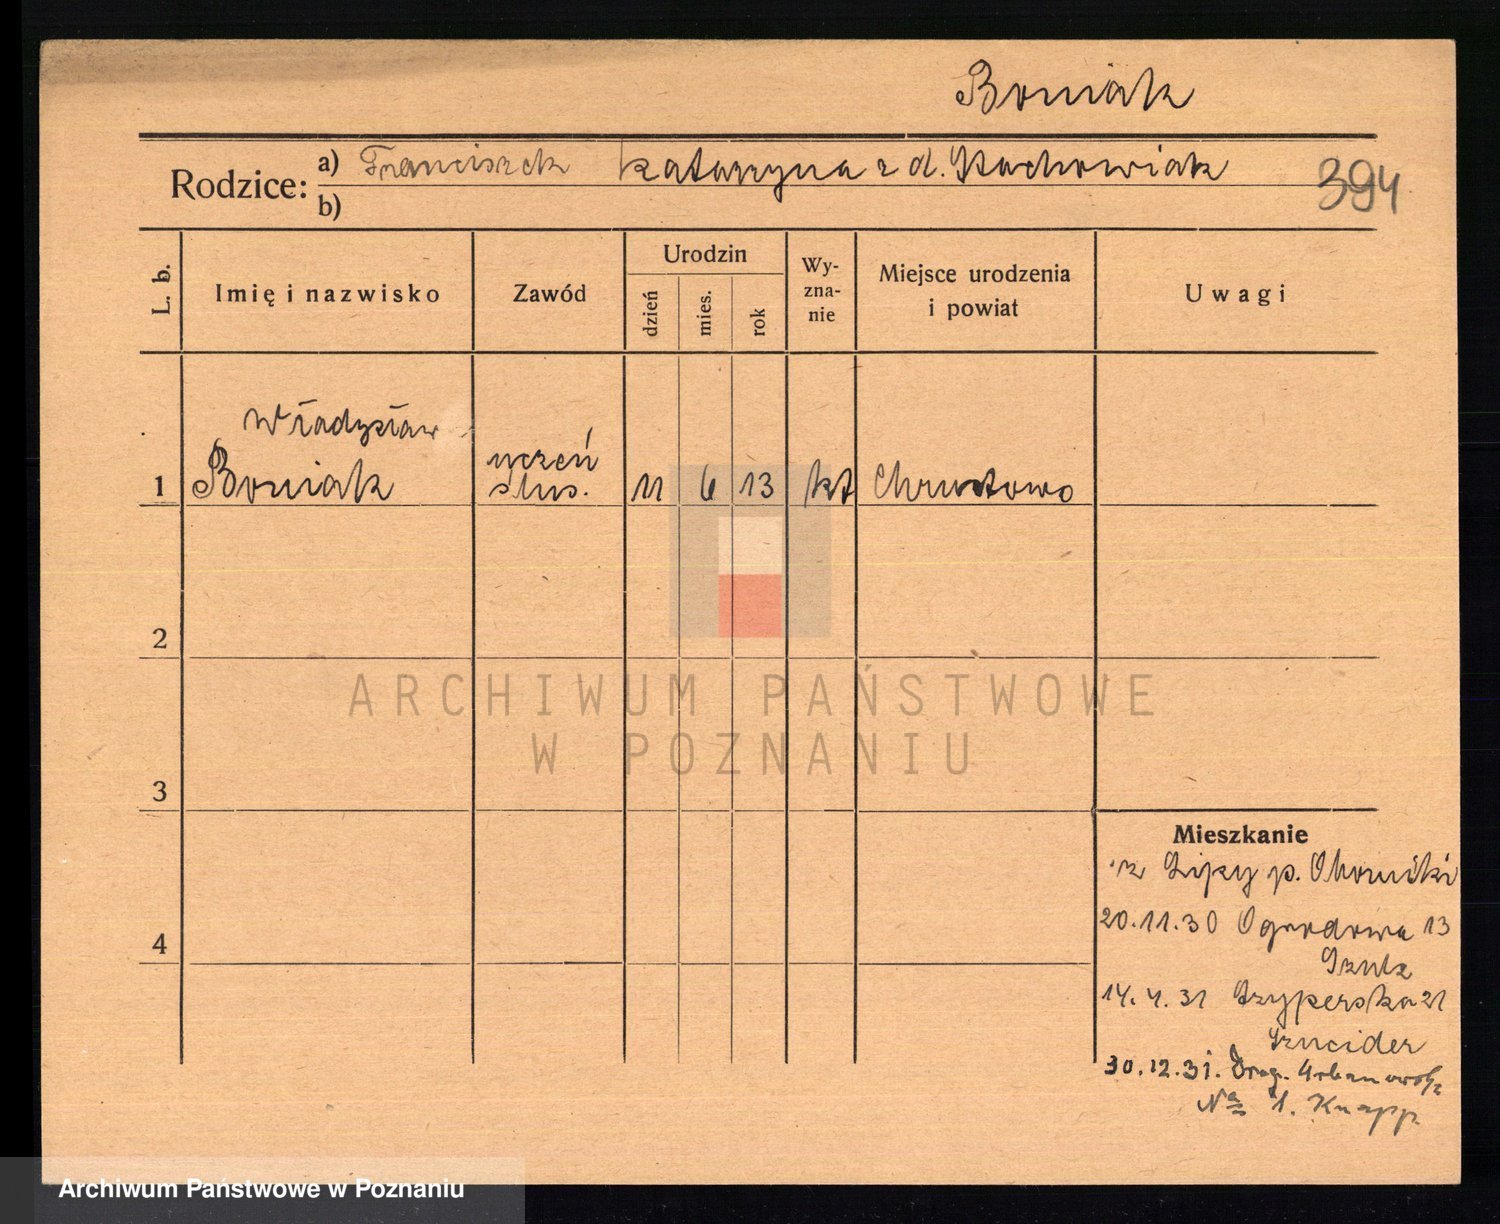 Boniak
Rodzice: a) Franciszek Katarzyna z d. Stachowiak
b)
394
L. b. Imię i nazwisko Zawód Urodzin dzień mies. rok Wy-zna-nie Miejsce urodzenia i powiat Uwagi
Władysław
1 Boniak uczeń ślus. 11 6 13 kt Chrustowo
2
3
4
ARCHIWUM PAŃSTWOWE
W POZNANIU
Mieszkanie
z Lipy p. Oborniki
20.11.30 Ogrodowa 13
14.4.31 21
30.12.31. Drog. Urbanowska
No 1. Knapp
Archiwum Państwowe w Poznaniu